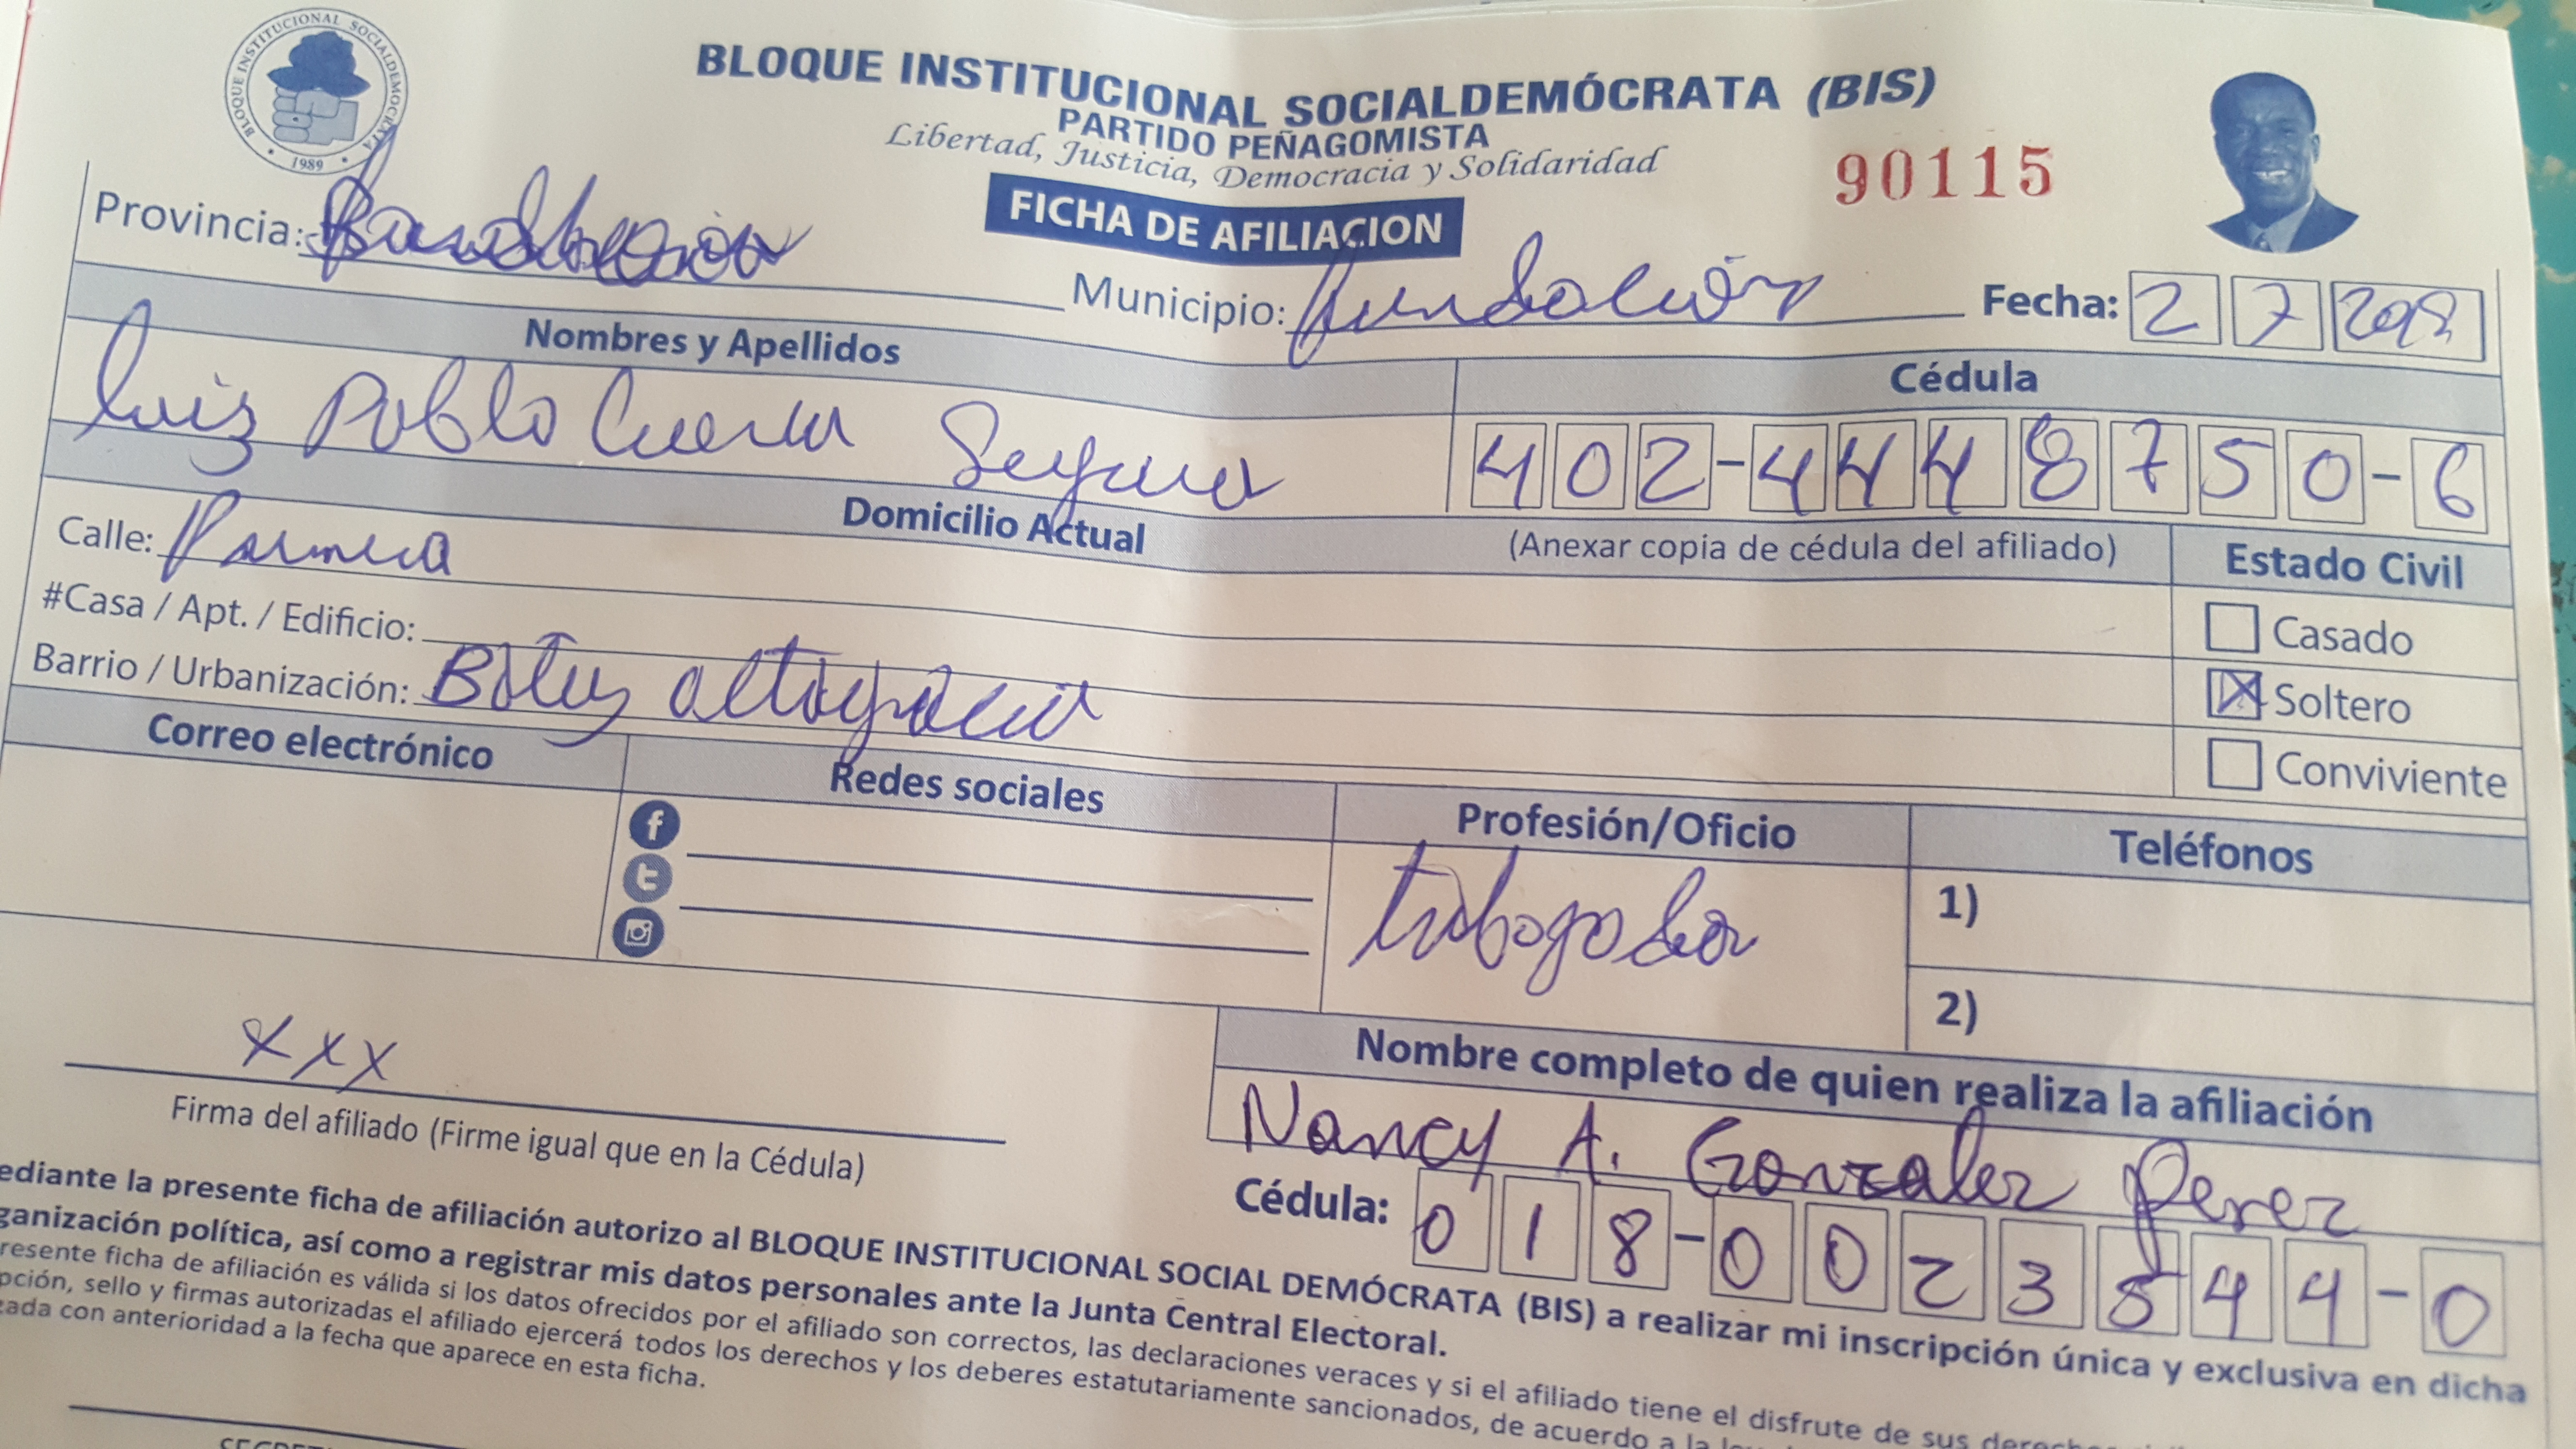 BLOQUE INSTITUCIONAL SOCIALDEMOCRATA
1989
BLOQUE INSTITUCIONAL SOCIALDEMÓCRATA (BIS)
PARTIDO PEÑAGOMISTA
Libertad, Justicia, Democracia y Solidaridad
FICHA DE AFILIACION
90115
Provincia:
Municipio: fundación
Fecha: 2 7 2018
Nombres y Apellidos
Cédula
Luis Pablo Cuevas Segura
402-4448750-6
Domicilio Actual
(Anexar copia de cédula del afiliado)
Estado Civil
Calle:
#Casa / Apt. / Edificio:
Barrio / Urbanización: altagracia
Casado
X Soltero
Conviviente
Correo electrónico
Redes sociales
Profesión/Oficio
Teléfonos
trabogodor
1)
2)
xxx
Firma del afiliado (Firme igual que en la Cédula)
Nombre completo de quien realiza la afiliación
Nancy A. Gonzalez Perez
Cédula: 018-0023544-0
ediante la presente ficha de afiliación autorizo al BLOQUE INSTITUCIONAL SOCIAL DEMÓCRATA (BIS) a realizar mi inscripción única y exclusiva en dicha
ganización política, así como a registrar mis datos personales ante la Junta Central Electoral.
resente ficha de afiliación es válida si los datos ofrecidos por el afiliado son correctos, las declaraciones veraces y si el afiliado tiene el disfrute de sus
pción, sello y firmas autorizadas el afiliado ejercerá todos los derechos y los deberes estatutariamente sancionados, de acuerdo a la
zada con anterioridad a la fecha que aparece en esta ficha.